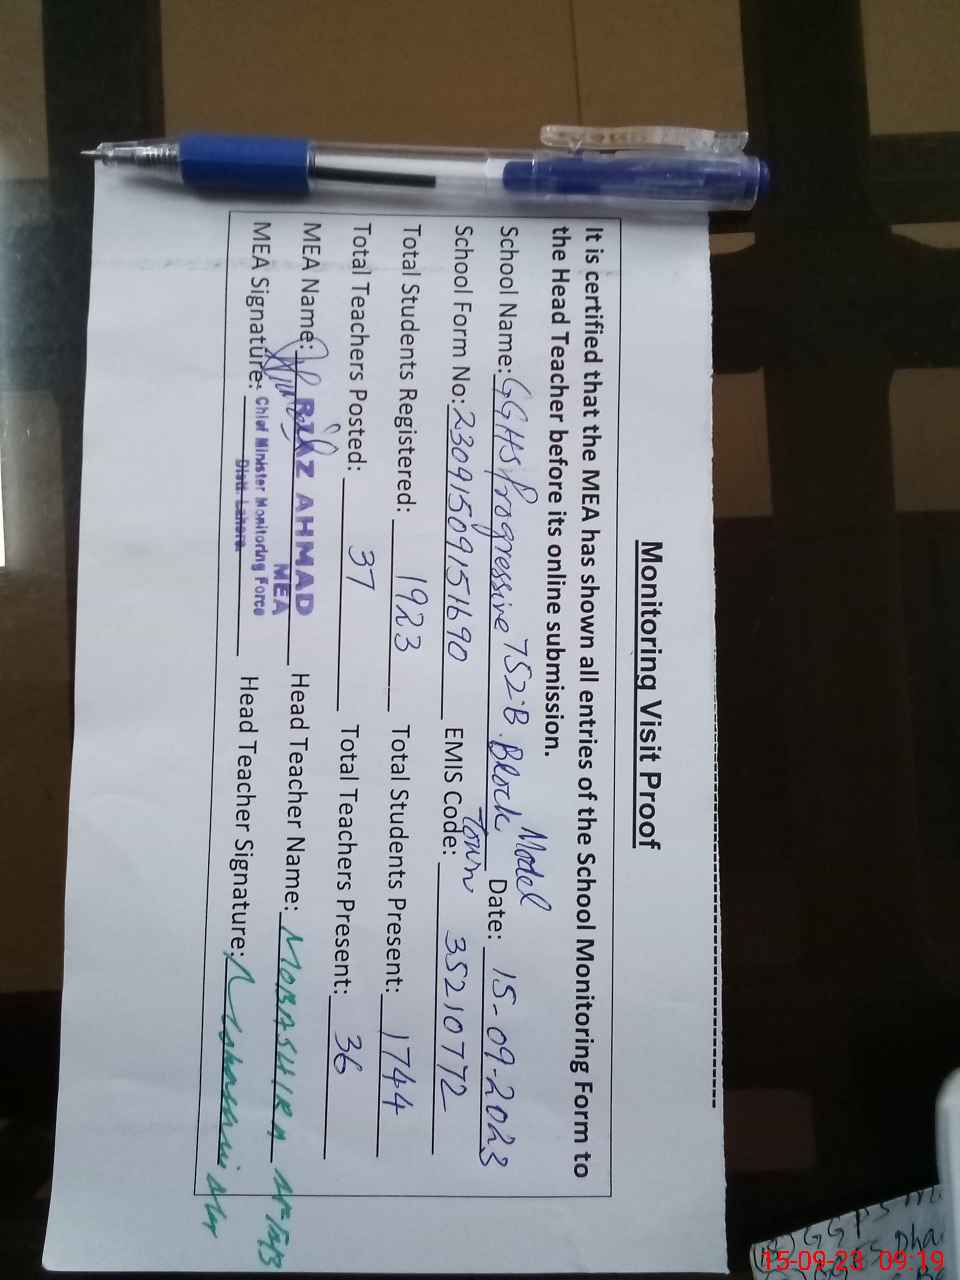 Monitoring Visit Proof
It is certified that the MEA has shown all entries of the School Monitoring Form to
the Head Teacher before its online submission.
School Name: GGHS Progressive 752-B. Block Model Town Date: 15-09-2023
School Form No: 23091509151690 EMIS Code: 35210772
Total Students Registered: 1923 Total Students Present: 1744
Total Teachers Posted: 37 Total Teachers Present: 36
MEA Name: RIAZ AHMAD Head Teacher Name: MOBASHIRA
MEA
MEA Signature: Chief Minister Monitoring Force Head Teacher Signature:
Distt. Lahore
GGPS
15-09-23 09:19